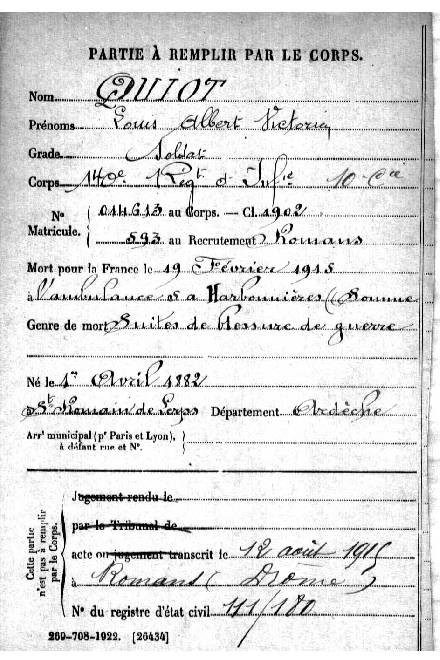 PARTIE À REMPLIR PAR LE CORPS.
Nom QUIOT
Prénoms Louis Albert Victorin
Grade Soldat
Corps 140e Regt d'Infie 10e Cie
No Matricule. 014613 au Corps. — Cl. 1902
593 au Recrutement Romans
Mort pour la France le 19 Février 1915
à l'ambulance 5 a Harbonnières (Somme
Genre de mort Suites de blessure de guerre
Né le 1er Avril 1882
à St Romain de Lerps Département Ardèche
Arrt municipal (pr Paris et Lyon),
à défaut rue et No.
Cette partie n'est pas à remplir par le Corps.
Jugement rendu le
par le Tribunal de
acte ou jugement transcrit le 12 août 1915
à Romans (Drôme)
No du registre d'état civil 111/180
269-708-1922. [26434]